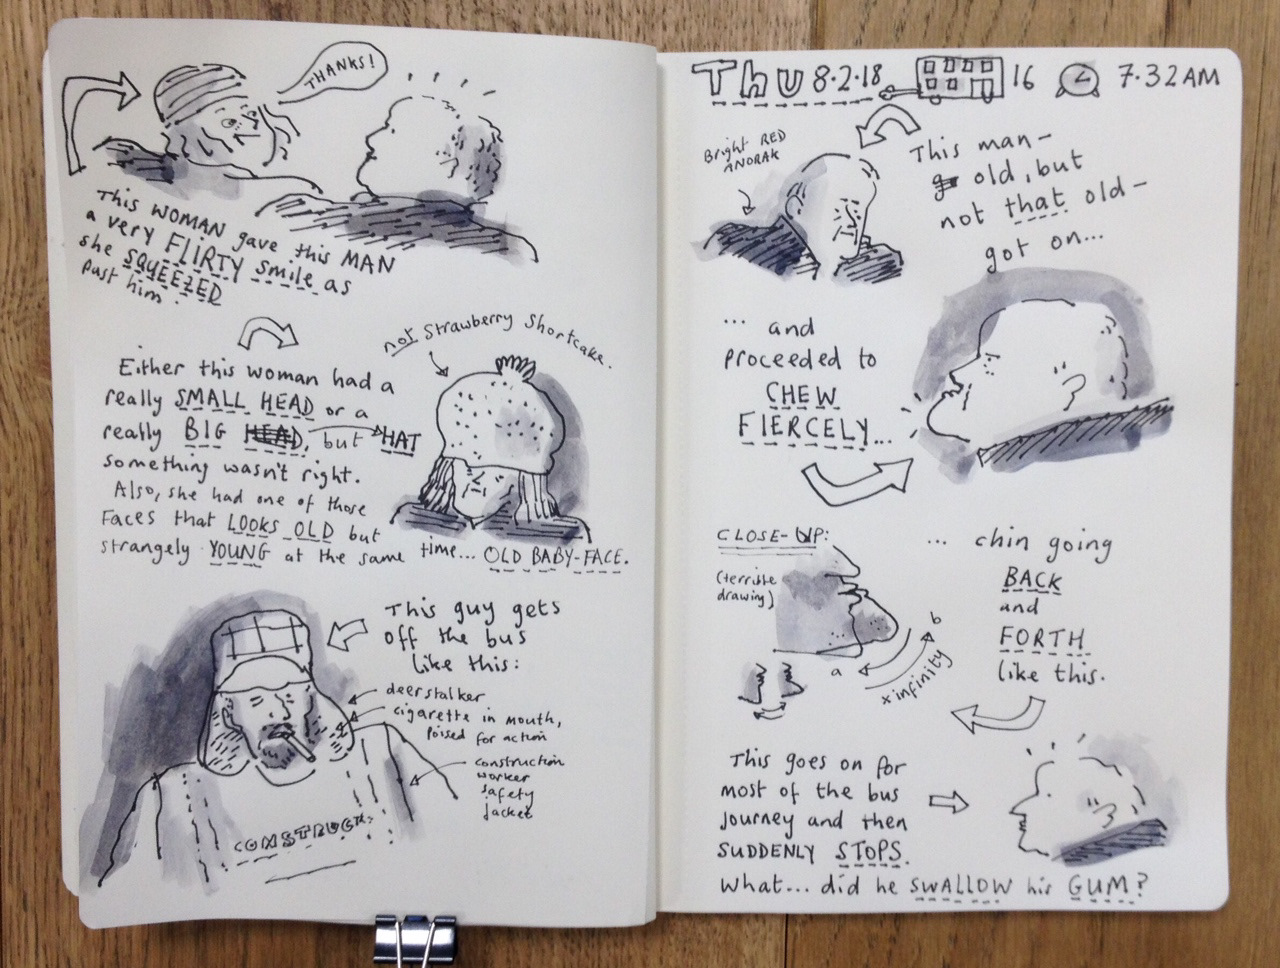 THANKS!
This WOMAN gave this MAN
a very FLIRTY smile as
she SQUEEZED
past him.
not Strawberry Shortcake.
Either this woman had a
really SMALL HEAD or a
really BIG HEAD, but HAT
something wasn't right.
Also, she had one of those
Faces that LOOKS OLD but
strangely YOUNG at the same time... OLD BABY-FACE.
This guy gets
off the bus
like this:
deerstalker
cigarette in mouth,
Poised for action
construction
worker
safety
jacket
CONSTRUCT
Thu 8.2.18 16 7.32AM
Bright RED
ANORAK
This man—
old, but
not that old—
got on...
... and
proceeded to
CHEW
FIERCELY...
CLOSE-UP:
(terrible
drawing)
a
b
x infinity
... chin going
BACK
and
FORTH
like this.
This goes on for
most of the bus
journey and then
SUDDENLY STOPS.
What... did he SWALLOW his GUM?